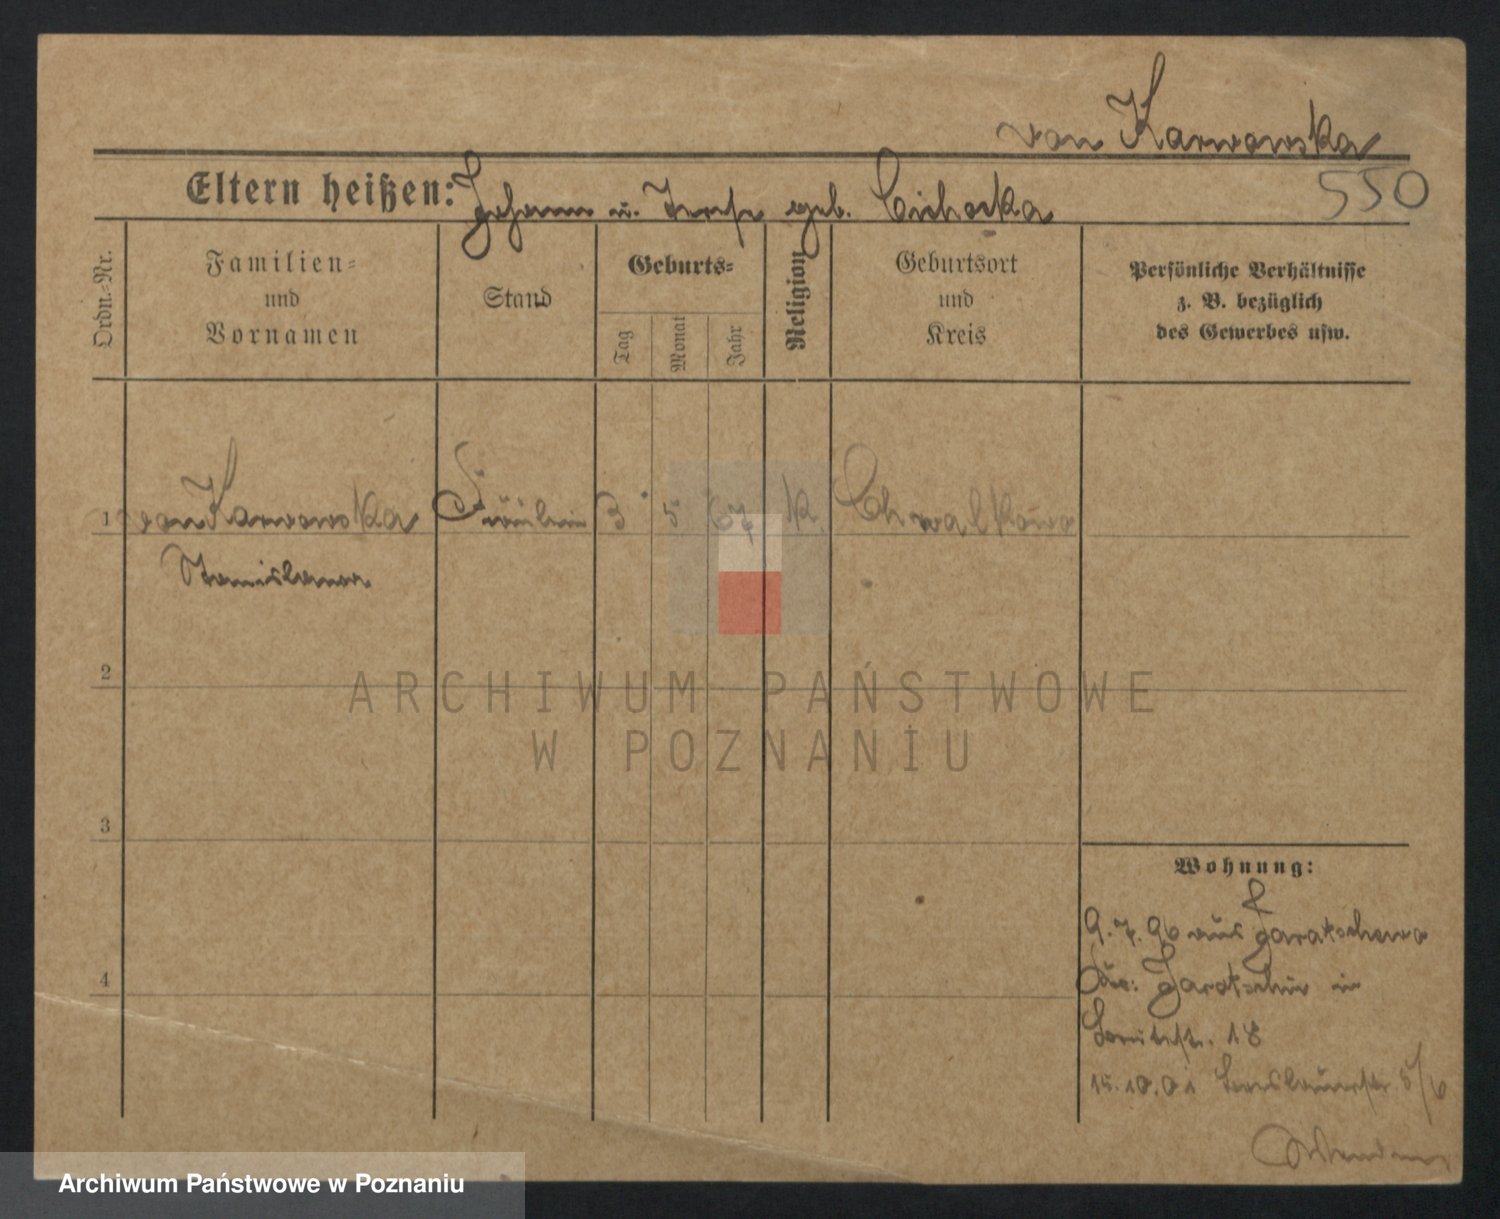 von Karwowska
Eltern heißen: Johann u. geb. Cichocka
550
Ordn.-Nr.
Familien-
und
Vornamen
Stand
Geburts-
Tag
Monat
Jahr
Religion
Geburtsort
und
Kreis
Persönliche Verhältnisse
z. B. bezüglich
des Gewerbes usw.
1 von Karwowska Fräulein 3 5 67 k. Chwalkowo
Stanislawa
2
ARCHIWUM PAŃSTWOWE
W POZNANIU
3
Wohnung:
9.7.96 aus Jaratschewo
Jarotschin in
4
18
15.10.01 5/6
Archiwum Państwowe w Poznaniu